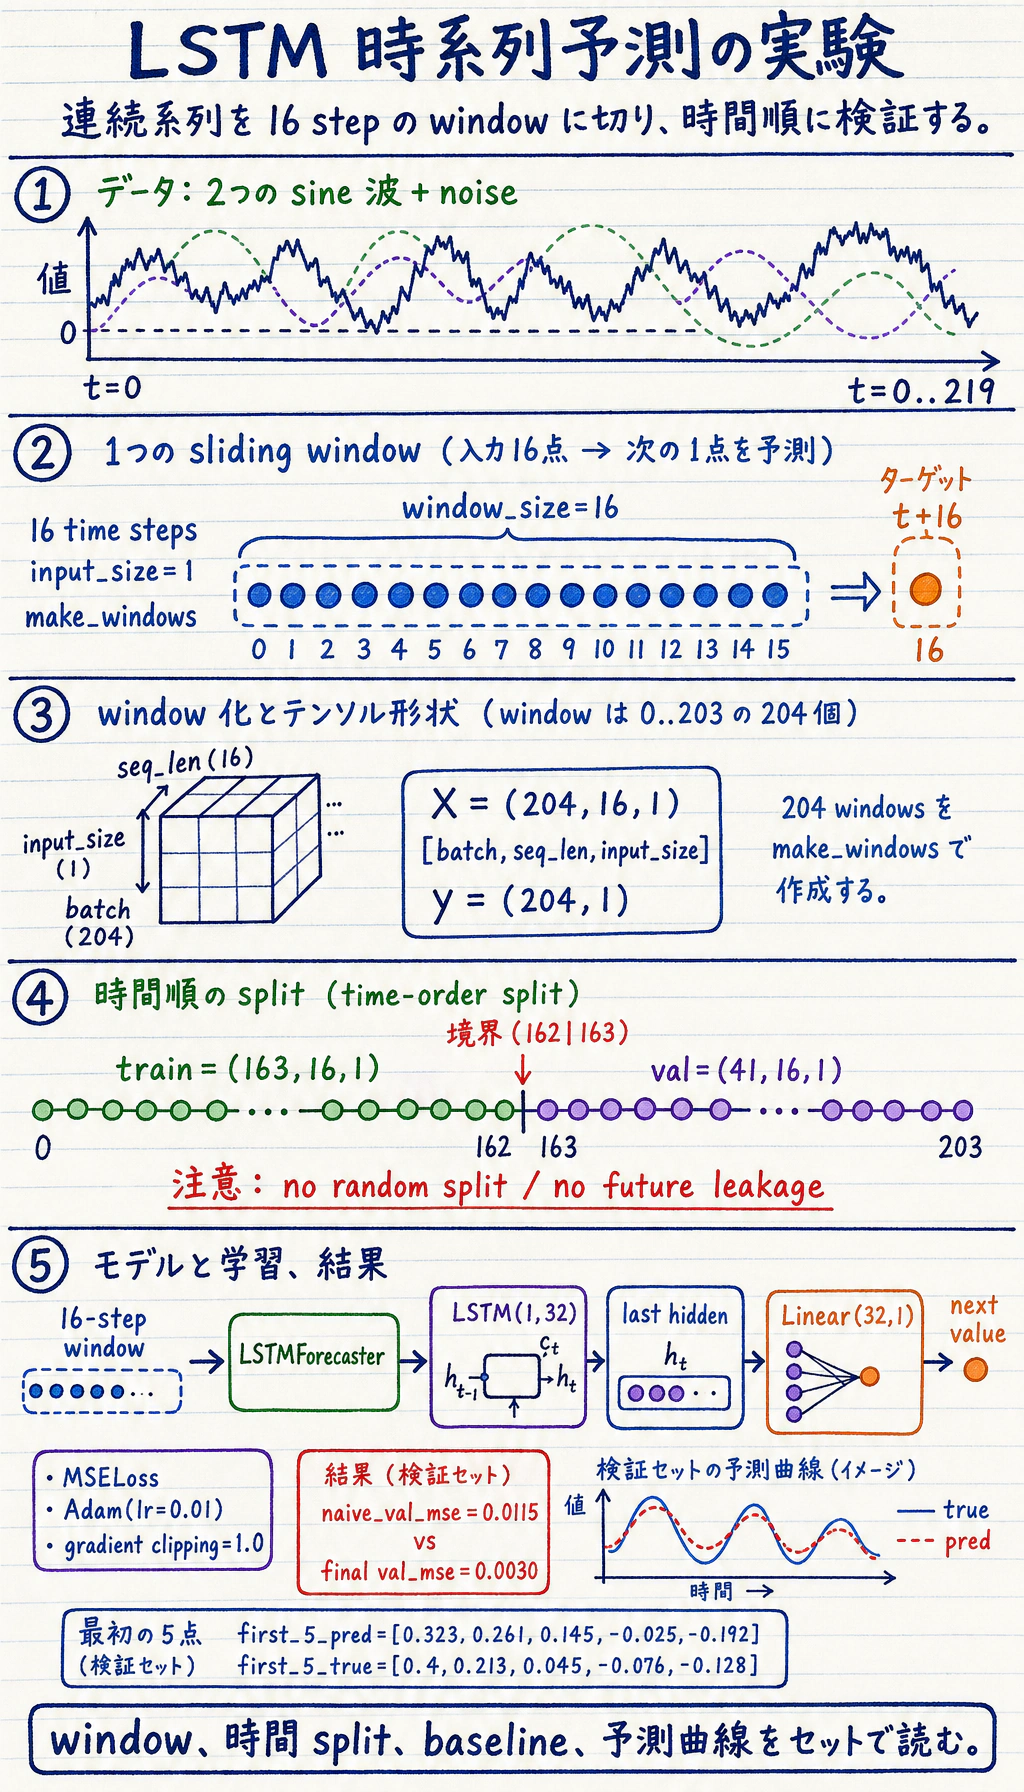 LSTM 時系列予測の実験
連続系列を 16 step の window に切り、時間順に検証する。
① データ: 2つの sine 波 + noise
値
0
t=0
t=0..219
② 1つの sliding window (入力16点 → 次の1点を予測)
ターゲット
t+16
window_size=16
16 time steps
input_size=1
make_windows
0 1 2 3 4 5 6 7 8 9 10 11 12 13 14 15
16
③ window 化とテンソル形状 (window は 0..203 の 204個)
seq_len(16)
input_size
(1)
batch
(204)
... 
...
X = (204, 16, 1)
[batch, seq_len, input_size]
y = (204, 1)
204 windows を
make_windows で
作成する。
④ 時間順の split (time-order split)
境界 (162|163)
train = (163, 16, 1)
val = (41, 16, 1)
0 162 163 203
注意: no random split / no future leakage
⑤ モデルと学習、結果
16-step
window
...
LSTMForecaster
LSTM(1,32)
c_t
h_{t-1}
h_t
last hidden
h_t
Linear(32,1)
next
value
• MSELoss
• Adam(lr=0.01)
• gradient clipping=1.0
結果 (検証セット)
naive_val_mse = 0.0115
vs
final val_mse = 0.0030
検証セットの予測曲線 (イメージ)
値
時間 →
true
pred
最初の 5点 first_5_pred=[0.323, 0.261, 0.145, -0.025, -0.192]
(検証セット) first_5_true=[0.4, 0.213, 0.045, -0.076, -0.128]
window、時間 split、baseline、予測曲線をセットで読む。